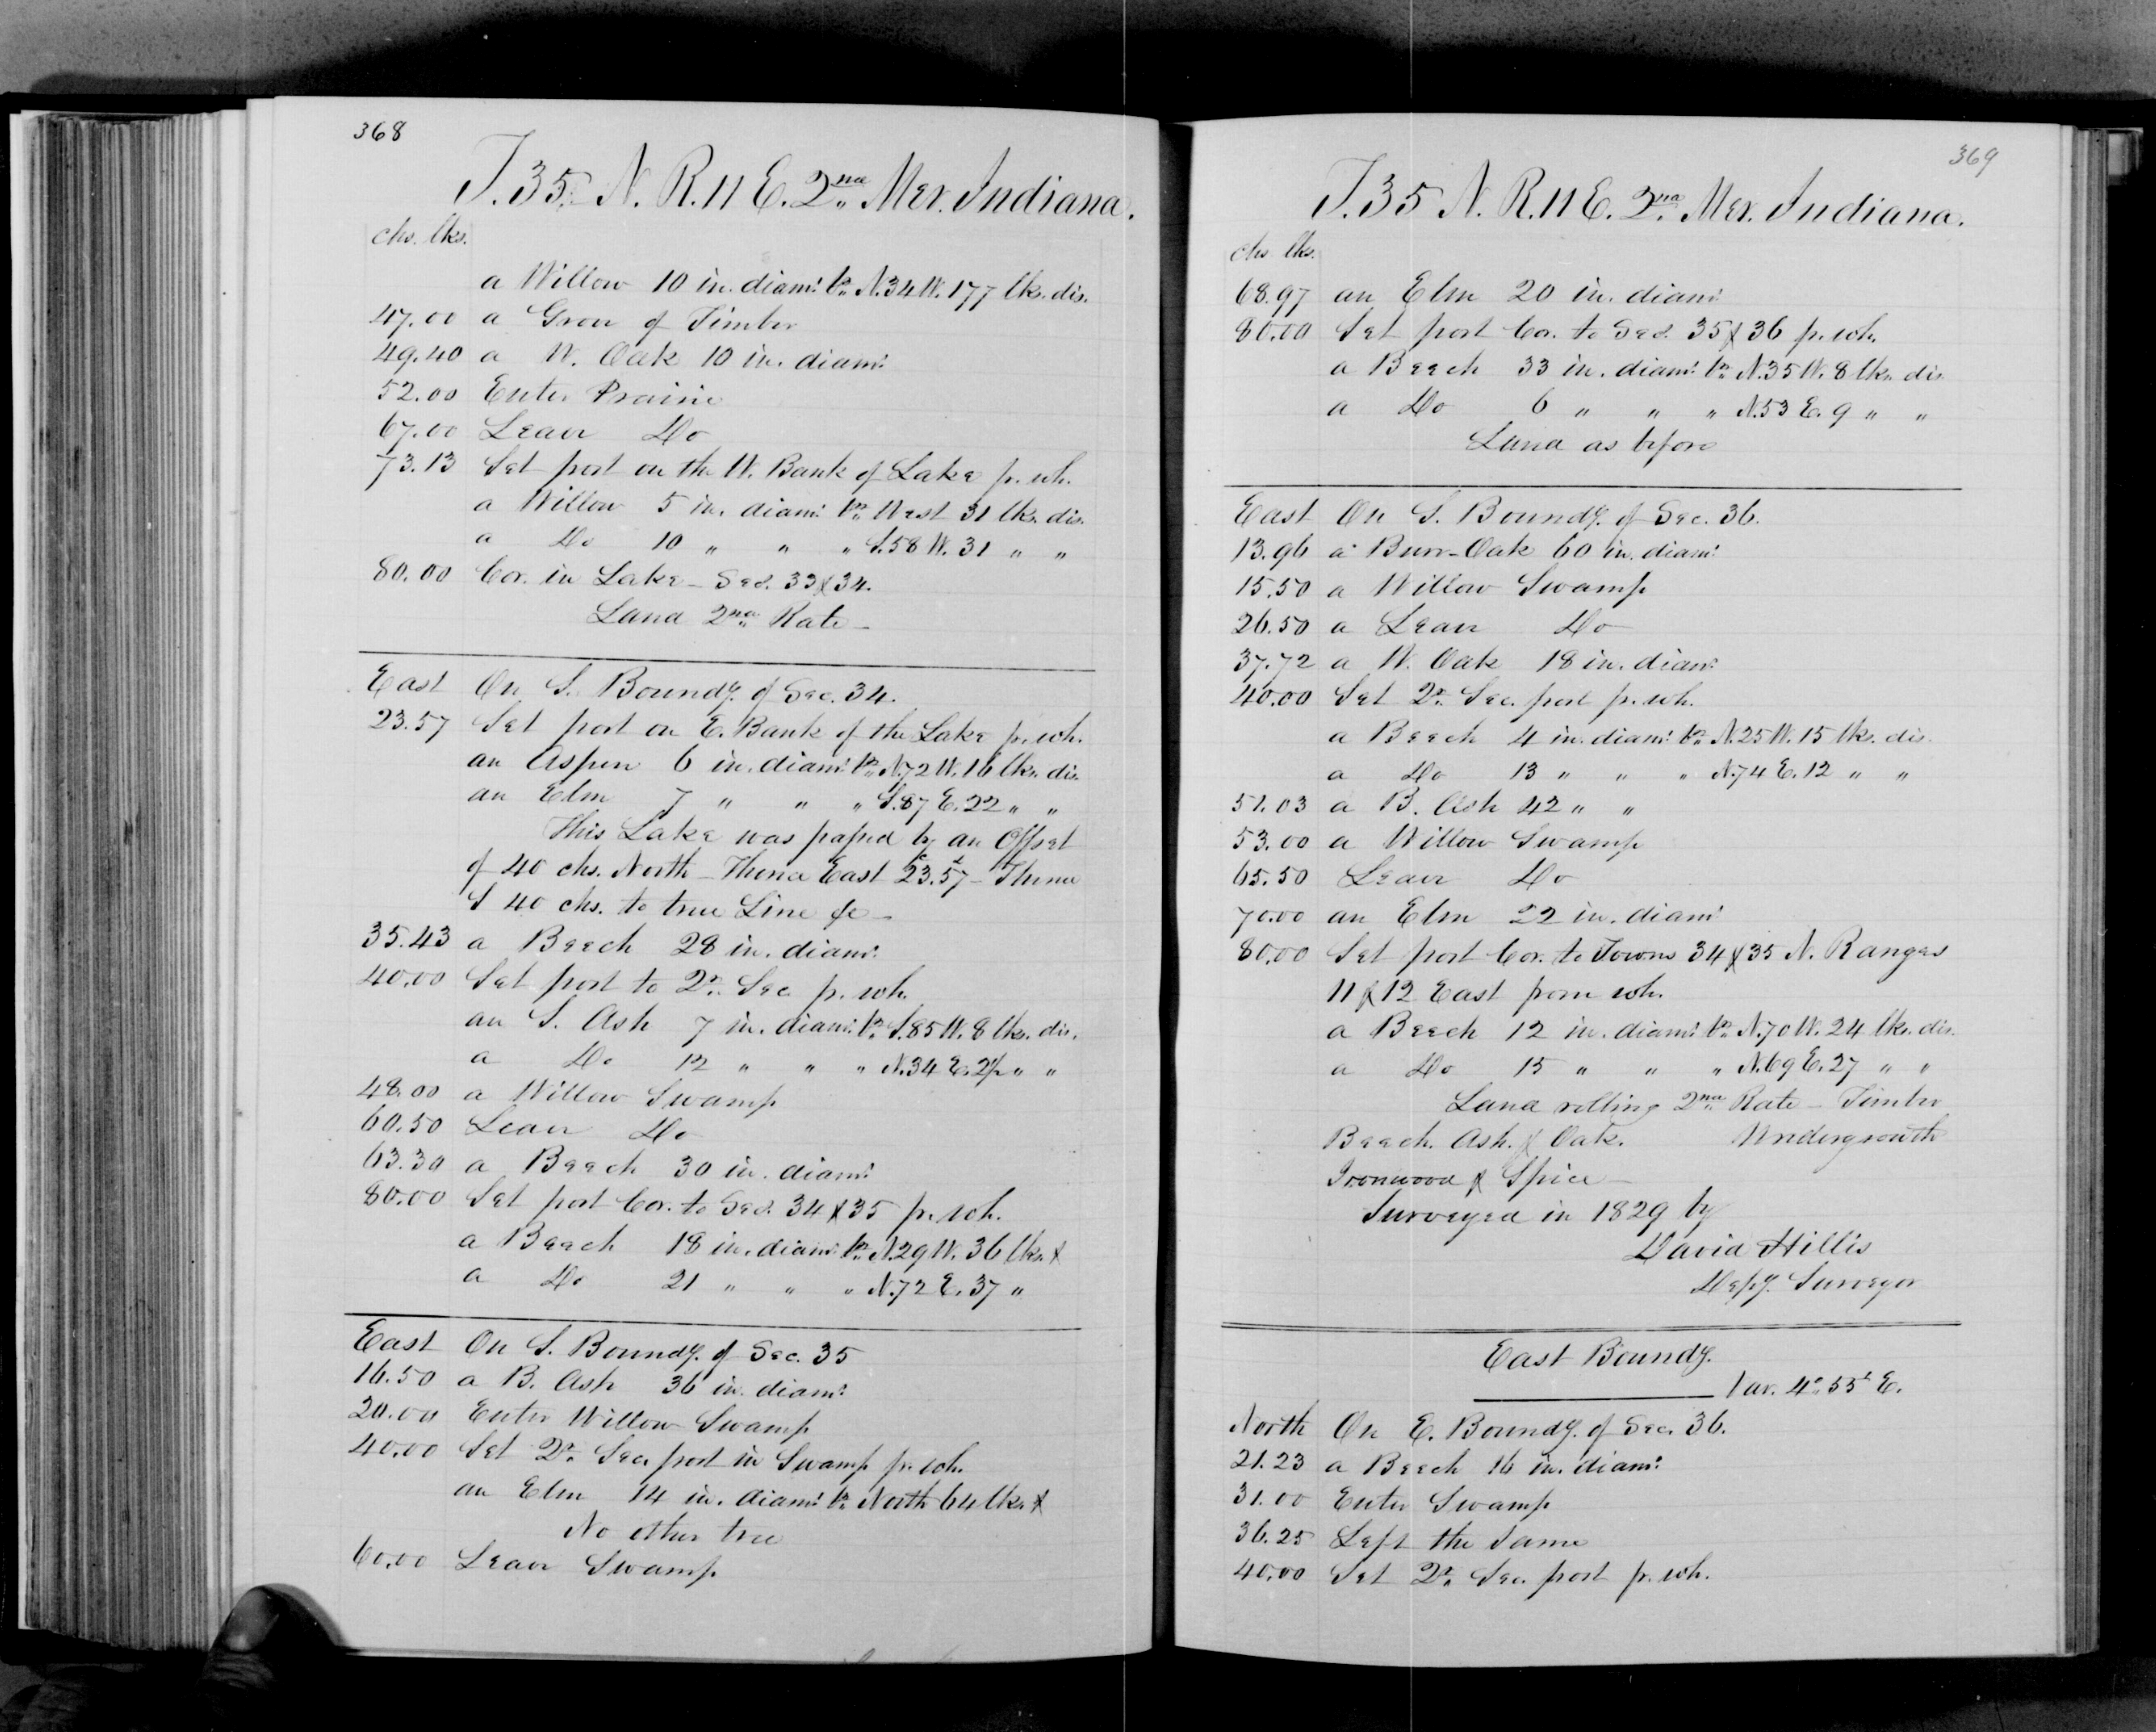 368
T. 35. N. R. 11 E. 2nd Mer. Indiana.
chs. lks.
a Willow 10 in. diamr. br. N. 34 W. 177 lks. dis.
47.00 a Grove of Timber
49.40 a W. Oak 10 in. diamr.
52.00 Enter Prairie
67.00 Leave Do
73.13 Set post on the W. Bank of Lake fr. wh.
a Willow 5 in. diamr. br. West 31 lks. dis.
a Do 10 " " " S. 58 W. 31 " "
80.00 Cor. in Lake - Secs. 33 & 34.
Land 2nd Rate -
East On S. Boundy. of Sec. 34.
23.57 Set post on E. Bank of the Lake fr. wh.
an Aspen 6 in. diamr. br. N. 72 W. 16 lks. dis.
an Elm 7 " " " S. 87 E. 22 " "
This Lake was passed by an Offset
of 40 chs. North - Thence East 23.57 - Thence
S 40 chs. to true Line &c -
35.43 a Beech 28 in. diamr.
40.00 Set post to 2r. Sec fr. wh.
an S. Ash 7 in. diamr. br. S. 85 W. 8 lks. dis.
a Do 12 " " " N. 34 E. " "
48.00 a Willow Swamp
60.50 Leave Do
63.30 a Beech 30 in. diamr.
80.00 Set post Cor. to Secs. 34 & 35 fr. wh.
a Beech 18 in. diamr. br. N. 29 W. 36 lks. &
a Do 21 " " " N. 72 E. 37 "
East On S. Boundy. of Sec. 35
16.50 a B. Ash 36 in. diamr.
20.00 Enter Willow Swamp
40.00 Set 2r. Sec. post in Swamp fr. wh.
an Elm 14 in. diamr. br. North 64 lks. &
No other tree
60.00 Leave Swamp
369
T. 35 N. R. 11 E. 2nd Mer. Indiana.
chs lks.
68.97 an Elm 20 in. diamr
80.00 Set post Cor. to Secs. 35 & 36 fr. wh.
a Beech 33 in. diamr. br. N. 35 W. 8 lks. dis.
a Do 6 " " " N. 53 E. 9 " "
Land as before
East On S. Boundy. of Sec. 36.
13.96 a Burr-Oak 60 in. diamr.
15.50 a Willow Swamp
26.50 a Leave Do
37.72 a W. Oak 18 in. diamr.
40.00 Set 2r. Sec. post fr. wh.
a Beech 4 in. diamr. br. N. 25 W. 15 lks. dis.
a Do 13 " " " N. 74 E. 12 " "
51.03 a B. Ash 42 " "
53.00 a Willow Swamp
65.50 Leave Do
70.00 an Elm 22 in. diamr
80.00 Set post Cor. to Towns 34 & 35 N. Ranges
11 & 12 East from wh.
a Beech 12 in. diamr. br. N. 70 W. 24 lks. dis.
a Do 15 " " " N. 69 E. 27 " "
Land rolling 2nd Rate - Timber
Beech. Ash. & Oak. Undergrowth
Ironwood & Spice -
Surveyed in 1829 by
David Hillis
Depy. Surveyor
East Boundy.
Var. 4° 55' E.
North On E. Boundy. of Sec. 36.
21.23 a Beech 16 in. diamr.
31.00 Enter Swamp
36.25 Left the Same
40.00 Set 2r. Sec. post fr. wh.